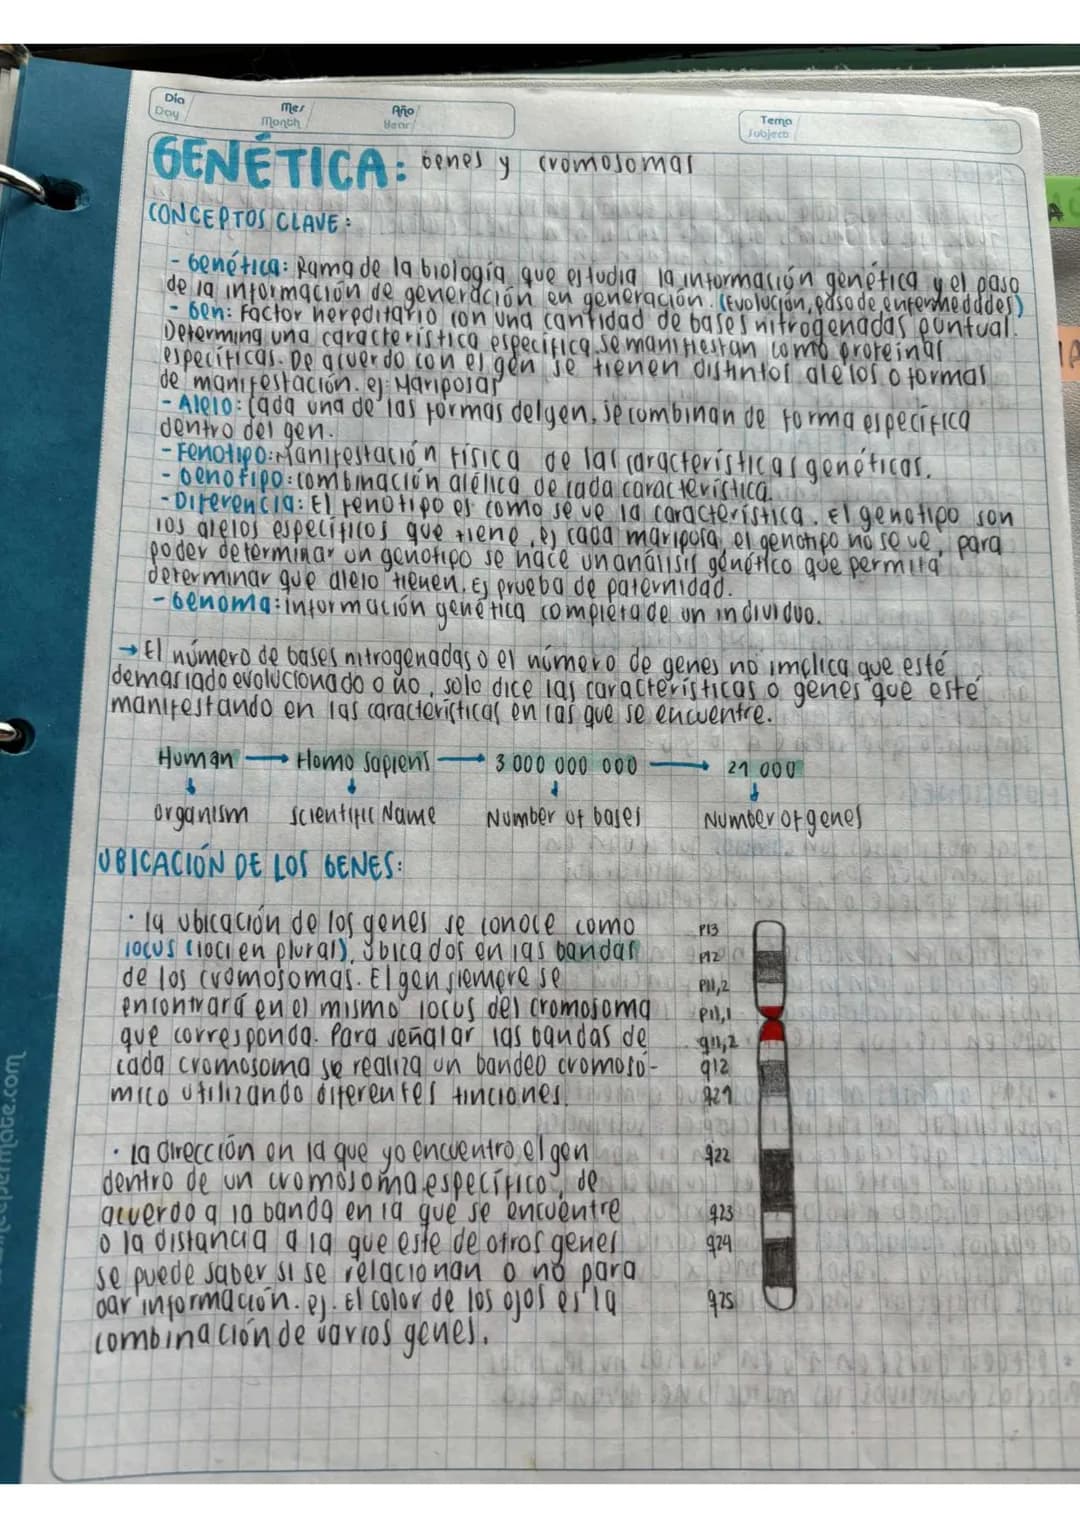 Día
Day
Mes
Month
Año
Year
Tema
Subject
GENÉTICA: Genes y cromosomas
CONCEPTOS CLAVE:
- Genética: Rama de la biología que estudia la información genética y el paso
de la información de generación en generación. (Evolución, paso de enfermedades)
- Gen: Factor hereditario con una cantidad de bases nitrogenadas puntual.
Determina una característica específica. Se manifiestan como proteínas
específicas. De acuerdo con el gen se tienen distintos alelos o formas
de manifestación. ej: Mariposas
- Alelo: Cada una de las formas del gen, se combinan de forma específica
dentro del gen.
- Fenotipo: Manifestación física de las características genéticas.
- Genotipo: combinación alélica de cada característica.
- Diferencia: El fenotipo es como se ve la característica. El genotipo son
los alelos específicos que tiene, ej cada mariposa, el genotipo no se ve, para
poder determinar un genotipo se hace un análisis genético que permita
determinar que alelo tienen. Ej prueba de paternidad.
- Genoma: información genética completa de un individuo.
→ El número de bases nitrogenadas o el número de genes no implica que esté
demasiado evolucionado o no, solo dice las características o genes que esté
manifestando en las características en las que se encuentre.
Human → Homo sapiens → 3 000 000 000 → 21 000
organism Scientific Name Number of bases Number of genes
UBICACIÓN DE LOS GENES:
· la ubicación de los genes se conoce como
locus (loci en plural), ubicados en las bandas
de los cromosomas. El gen siempre se
encontrará en el mismo locus del cromosoma
que corresponda. Para señalar las bandas de
cada cromosoma se realiza un bandeo cromosó-
mico utilizando diferentes tinciones.
P13
P12
P11,2
P11,1
q11,2
q12
q21
q22
q23
q24
q25
· La dirección en la que yo encuentro el gen
dentro de un cromosoma específico, de
acuerdo a la banda en la que se encuentre
o la distancia a la que este de otros genes
se puede saber si se relacionan o no para
dar información. ej. El color de los ojos es la
combinación de varios genes.